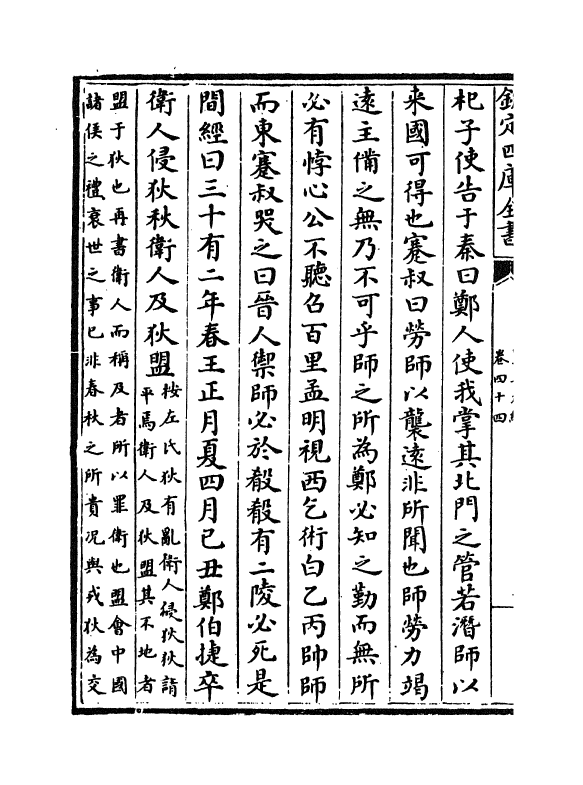 欽定四庫全書
卷四十四
杞子使告于秦曰鄭人使我掌其北門之管若潛師以
来國可得也蹇叔曰勞師以襲逺非所聞也師勞力竭
逺主備之無乃不可乎師之所為鄭必知之勤而無所
必有悖心公不聽召百里孟明視西乞術白乙丙帥師
而東蹇叔哭之曰晉人禦師必於殽殽有二陵必死是
間經曰三十有二年春王正月夏四月己丑鄭伯捷卒
衛人侵狄秋衛人及狄盟
按左氏狄有亂衛人侵狄狄請
平焉衛人及狄盟其不地者
盟于狄也再書衛人而稱及者所以罪衛也盟會中國
諸侯之禮衰世之事已非春秋之所貴况與戎狄為交